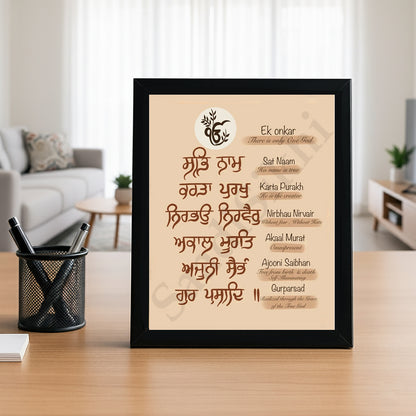 ੴ
Ek onkar
There is only One God
ਸਤਿ ਨਾਮੁ
Sat Naam
His name is true
ਕਰਤਾ ਪੁਰਖੁ
Karta Purakh
He is the creator
ਨਿਰਭਉ ਨਿਰਵੈਰੁ
Nirbhau Nirvair
Without fear, Without
ਅਕਾਲ ਮੂਰਤਿ
Akaal Murat
Omnipresent
ਅਜੂਨੀ ਸੈਭੰ
Ajooni Saibhan
Free from birth & death
Self Illuminating
ਗੁਰ ਪ੍ਰਸਾਦਿ ॥
Gurparsad
Realized through the Grace
of the True God